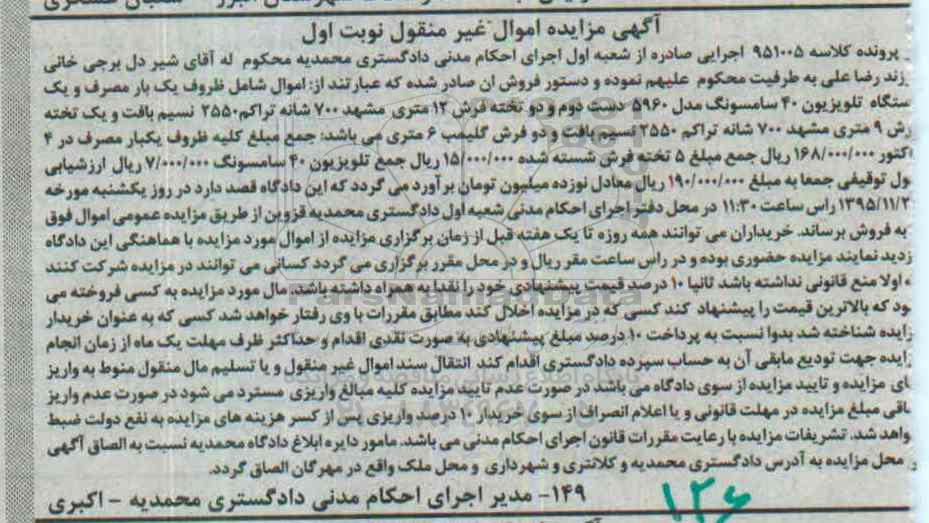 آگهی مزایده اموال غیر منقول نوبت اول
پرونده کلاسه ۹۵۱۰۰۵ اجرایی صادره از شعبه اول اجرای احکام مدنی دادگستری محمدیه محکوم له آقای شیر دل برجی خانی
زند رضا علی به طرفیت محکوم علیهم نموده و دستور فروش ان صادر شده که عبارتند از: اموال شامل ظروف یک بار مصرف و یک
ستگاه تلویزیون ۴۰ سامسونگ مدل ۵۹۶۰ دست دوم و دو تخته فرش ۱۲ متری مشهد ۷۰۰ شانه تراکم ۲۵۵۰ نسیم بافت و یک تخته
رش ۹ متری مشهد ۷۰۰ شانه تراکم ۲۵۵۰ نسیم بافت و دو فرش گلیمب ۶ متری می باشد: جمع مبلغ کلیه ظروف یکبار مصرف در ۴
اکتور ۱۶۸/۰۰۰/۰۰۰ ریال جمع مبلغ ۵ تخته فرش شسته شده ۱۵/۰۰۰/۰۰۰ ریال جمع تلویزیون ۴۰ سامسونگ ۷/۰۰۰/۰۰۰ ریال ارزشیابی
ول توقیفی جمعا به مبلغ ۱۹۰/۰۰۰/۰۰۰ ریال معادل نوزده میلیون تومان برآورد می گردد که این دادگاه قصد دارد در روز یکشنبه مورخه
۱۳۹۵/۱۱/۲ راس ساعت ۱۱:۳۰ در محل دفتر اجرای احکام مدنی شعبه اول دادگستری محمدیه قزوین از طریق مزایده عمومی اموال فوق
به فروش برساند. خریداران می توانند همه روزه تا یک هفته قبل از زمان برگزاری مزایده از اموال مورد مزایده با هماهنگی این دادگاه
زدید نمایند مزایده حضوری بوده و در راس ساعت مقرر ریال و در محل مقرر برگزاری می گردد کسانی می توانند در مزایده شرکت کنند
ه اولا منع قانونی نداشته باشد ثانیا ۱۰ درصد قیمت پیشنهادی خود را نقدا به همراه داشته باشد. مال مورد مزایده به کسی فروخته می
ود که بالاترین قیمت را پیشنهاد کند کسی که در مزایده اخلال کند مطابق مقررات با وی رفتار خواهد شد کسی که به عنوان خریدار
زایده شناخته شد بدوا نسبت به پرداخت ۱۰ درصد مبلغ پیشنهادی به صورت نقدی اقدام و حداکثر ظرف مهلت یک ماه از زمان انجام
زایده جهت تودیع مابقی آن به حساب سپرده دادگستری اقدام کند انتقال سند اموال غیر منقول و یا تسلیم مال منقول منوط به واریز
ای مزایده و تایید مزایده از سوی دادگاه می باشد در صورت عدم تایید مزایده کلیه مبالغ واریزی مسترد می شود در صورت عدم واریز
اقی مبلغ مزایده در مهلت قانونی و یا اعلام انصراف از سوی خریدار ۱۰ درصد واریزی پس از کسر هزینه های مزایده به نفع دولت ضبط
واهد شد. تشریفات مزایده با رعایت مقررات قانون اجرای احکام مدنی می باشد. مامور دایره ابلاغ دادگاه محمدیه نسبت به الصاق آگهی
ر محل مزایده به آدرس دادگستری محمدیه و کلانتری و شهرداری و محل ملک واقع در مهرگان الصاق گردد.
۱۴۹- مدیر اجرای احکام مدنی دادگستری محمدیه - اکبری
۱۳۶
ParsNamadData